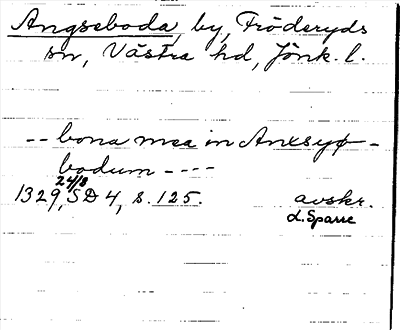 Angseboda, by, Fröderyds
sn, Västra hd, Jönk. l.
-- bona mea in Anxsyø-
bodum ----
24/8
1329, SD 4, s. 125. avskr.
L. Sparre